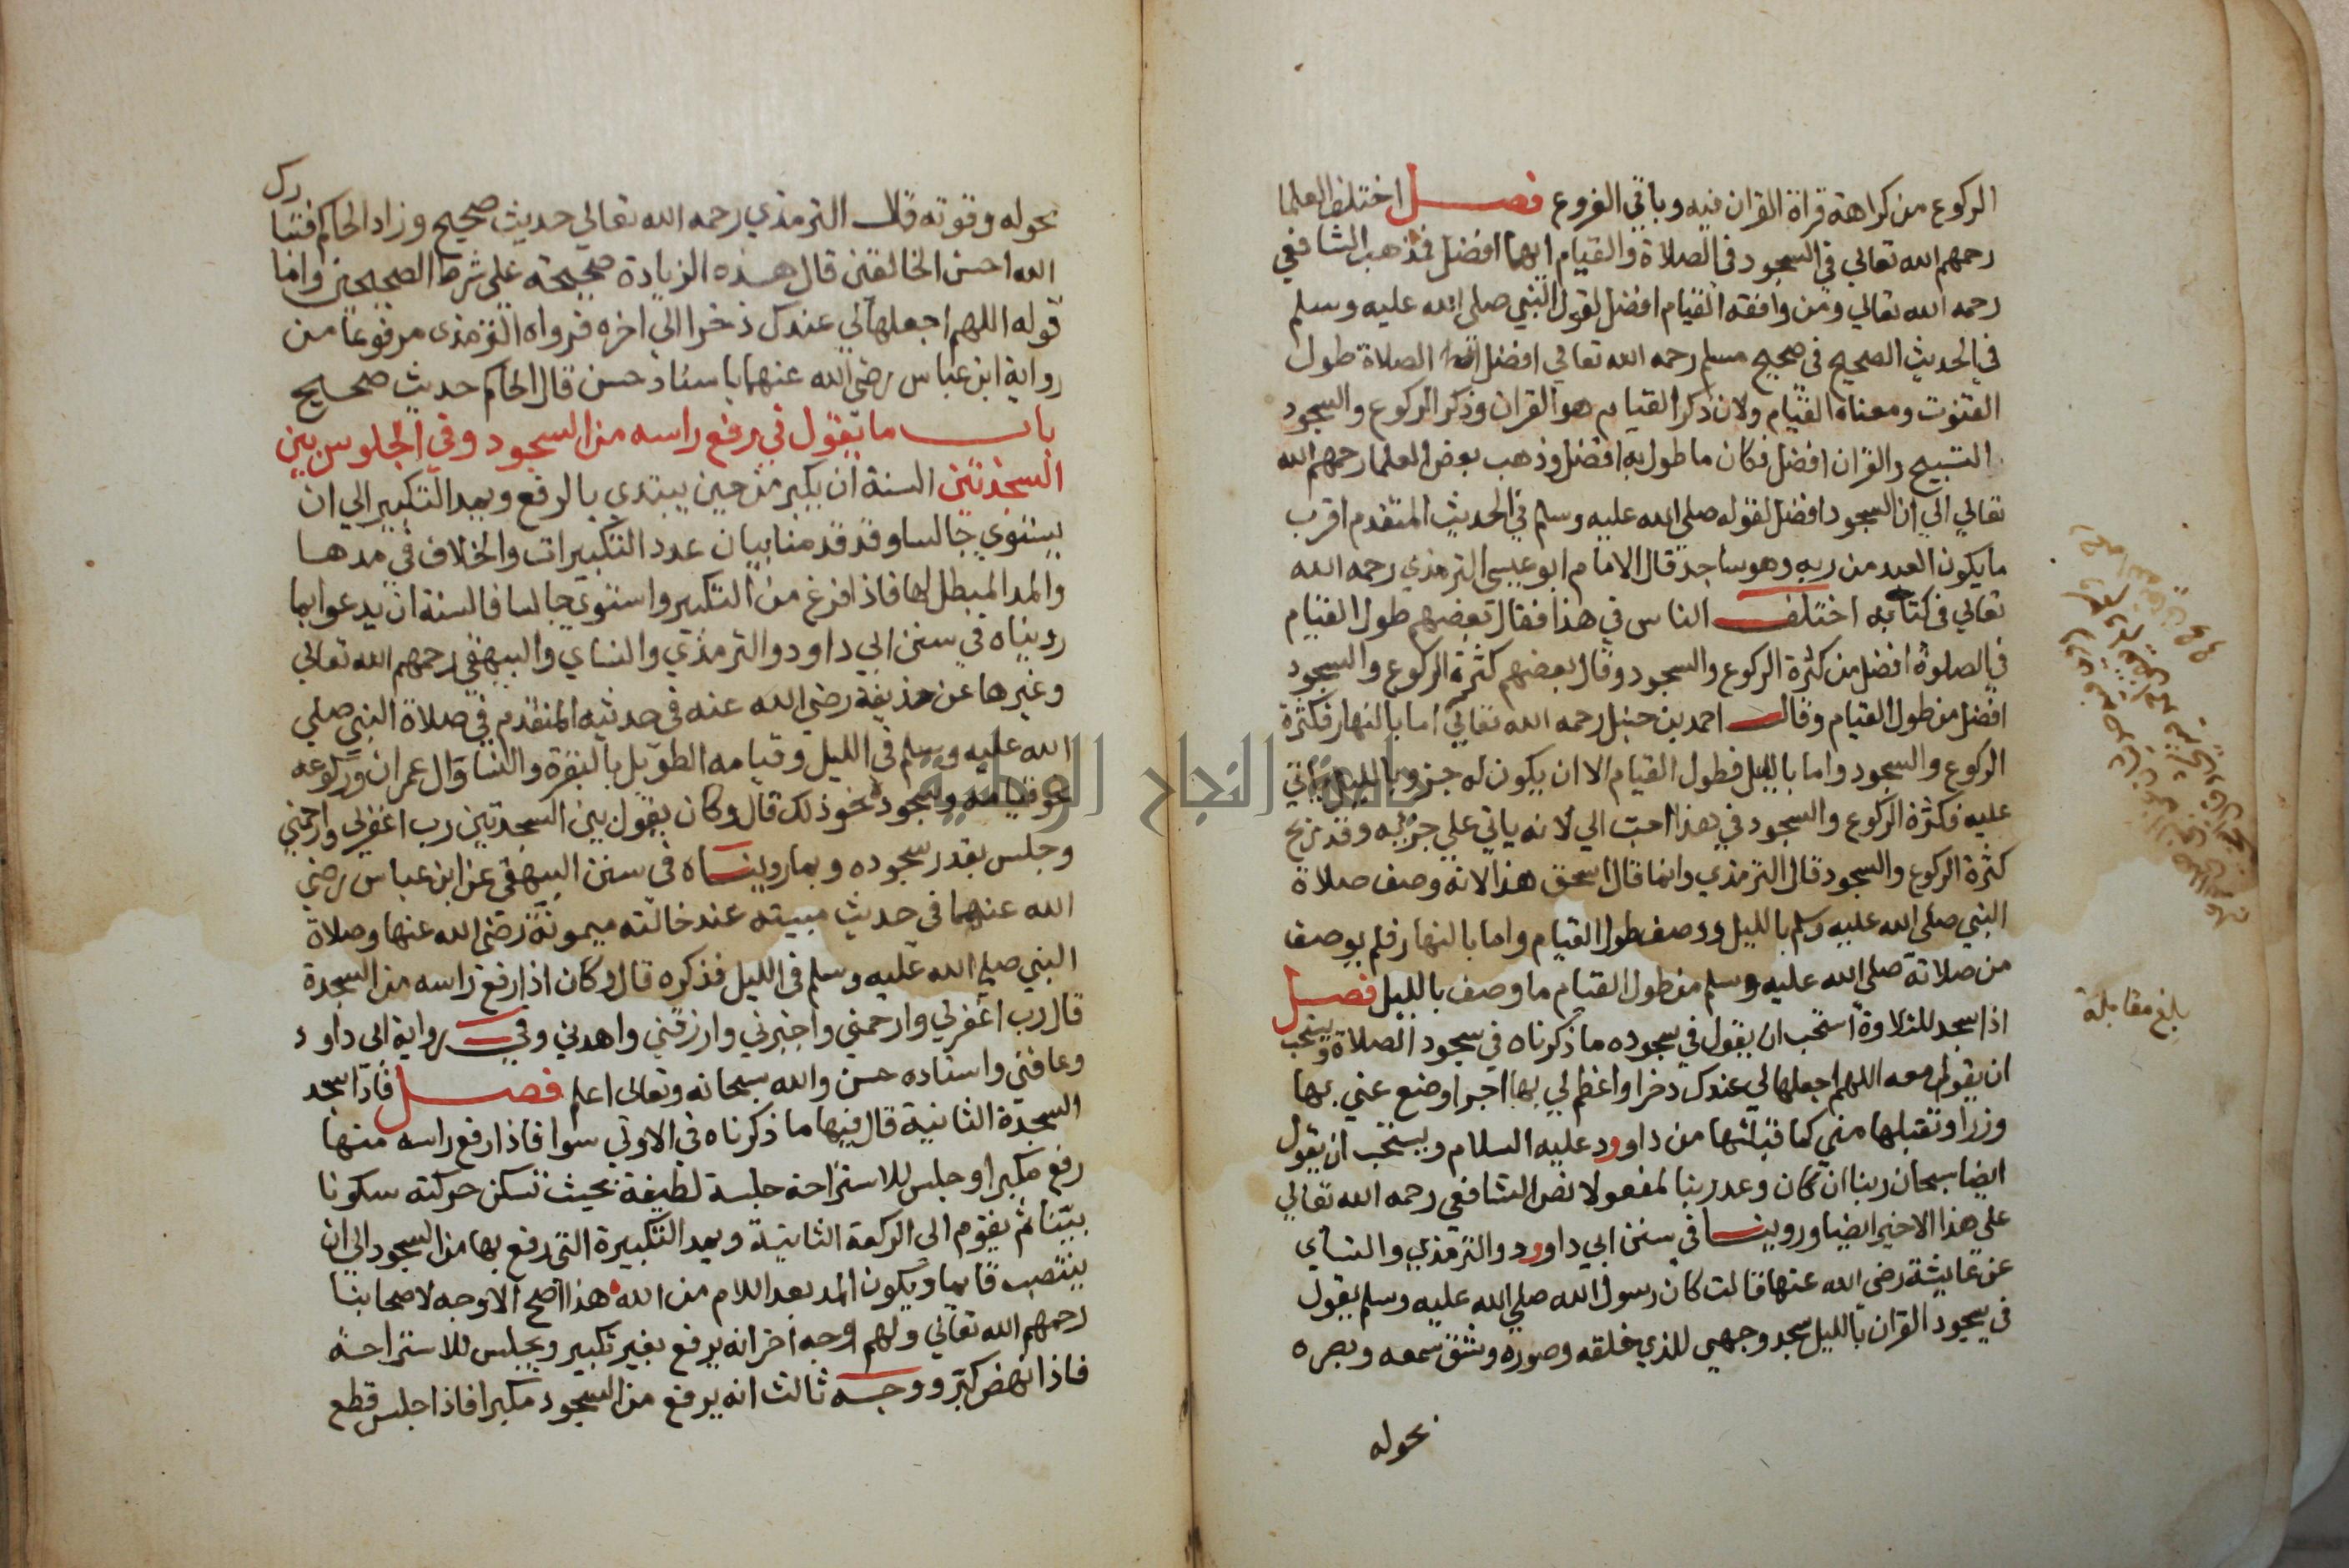 الركوع من كراهة قراة القران فيه وباقي الفروع فصل اختلف العلما
رحمهم الله تعالي في السجود في الصلاة والقيام ايهما افضل فذهب الشافعي
رحمه الله تعالي ومن وافقه القيام افضل لقول النبي صلي الله عليه وسلم
في الحديث الصحيح في صحيح مسلم رحمه الله تعالي افضل الصلاة طول
القنوت ومعناه القيام ولان ذكر القيام هو القران وذكر الركوع والسجود
التسبيح والقران افضل فكان ما طول به افضل وذهب بعض العلما رحمهم الله
تعالي الي ان السجود افضل لقوله صلي الله عليه وسلم في الحديث المتقدم اقرب
ما يكون العبد من ربه وهو ساجد قال الامام ابو عيسي الترمذي رحمه الله
تعالي في كتابه اختلف الناس في هذا فقال بعضهم طول القيام
في الصلوة افضل من كثرة الركوع والسجود وقال بعضهم كثرة الركوع والسجود
افضل من طول القيام وقال احمد بن حنبل رحمه الله تعالي اما بالنهار فكثرة
الركوع والسجود واما بالليل فطول القيام الا ان يكون له جزو بالليل ياتي
عليه فكثرة الركوع والسجود في هذا احب الي لانه ياتي علي جزئيه وقد يربح
كثرة الركوع والسجود قال الترمذي وانما قال اسحق هذا لانه وصف صلاة
النبي صلي الله عليه وسلم بالليل ووصف طول القيام واما بالنهار فلم يوصف
من صلاته صلي الله عليه وسلم من طول القيام ما وصف بالليل فصل
اذا سجد للتلاوة استحب ان يقول في سجوده ما ذكرناه في سجود الصلاة ويستحب
ان يقول معه اللهم اجعلها لي عندك ذخرا واعظم لي بها اجرا وضع عني بها
وزرا وتقبلها مني كما قبلتها من داوود عليه السلام ويستحب ان يقول
ايضا سبحان ربنا ان كان وعد ربنا لمفعولا نص الشافعي رحمه الله تعالي
علي هذا الاخير ايضا وروينا في سنن ابي داوود والترمذي والنساي
عن عايشة رضي الله عنها قالت كان رسول الله صلي الله عليه وسلم يقول
في سجود القران بالليل سجد وجهي للذي خلقه وصوره وشق سمعه وبصره
بحوله
بلغ مقابلة
بحوله وقوته قال الترمذي رحمه الله تعالي حديث صحيح وزاد الحاكم فتبارك
الله احسن الخالقين قال هذه الزيادة صحيحة علي شرط الصحيحين واما
قوله اللهم اجعلها لي عندك ذخرا الي اخره فرواه الترمذي مرفوعا من
رواية ابن عباس رضي الله عنهما باسناد حسن قال الحاكم حديث صحيح
باب ما يقول في رفع راسه من السجود وفي الجلوس بين
السجدتين السنة ان يكبر من حين يبتدي بالرفع ويمد التكبير الي ان
يستوي جالسا وقد قدمنا بيان عدد التكبيرات والخلاف في مدها
والمد المبطل لها فاذا فرغ من التكبير واستوي جالسا فالسنة ان يدعو بما
رويناه في سنن ابي داود والترمذي والنساي والبيهقي رحمهم الله تعالي
وغيرها عن حذيفة رضي الله عنه في حديثه المتقدم في صلاة النبي صلي
الله عليه وسلم في الليل وقيامه الطويل بالبقرة والنسا وال عمران وركوعه
نحو قيامه وسجوده نحو ذلك قال وكان يقول بين السجدتين رب اغفرلي وارحمني
وجلس بقدر سجوده وبما رويناه في سنن البيهقي عن ابن عباس رضي
الله عنهما في حديث مبيته عند خالته ميمونة رضي الله عنها وصلاة
النبي صلي الله عليه وسلم في الليل فذكره قال وكان اذا رفع راسه من السجدة
قال رب اغفرلي وارحمني واجبرني وارزقني واهدني وفي رواية ابي داود
وعافني واسناده حسن والله سبحانه وتعالي اعلم فصل فاذا سجد
السجدة الثانية قال فيها ما ذكرناه في الاولي سوا فاذا رفع راسه منها
رفع مكبرا وجلس للاستراحة جلسة لطيفة بحيث تسكن حركته سكونا
بينا ثم يقوم الي الركعة الثانية ويمد التكبيرة التي رفع بها من السجود الي ان
ينتصب قايما ويكون المد بعد اللام من الله هذا اصح الاوجه لاصحابنا
رحمهم الله تعالي ولهم وجه اخر انه يرفع بغير تكبير ويجلس للاستراحة
فاذا نهض كبر ووجه ثالث انه يرفع من السجود مكبرا فاذا جلس قطع
جامعة النجاح الوطنية